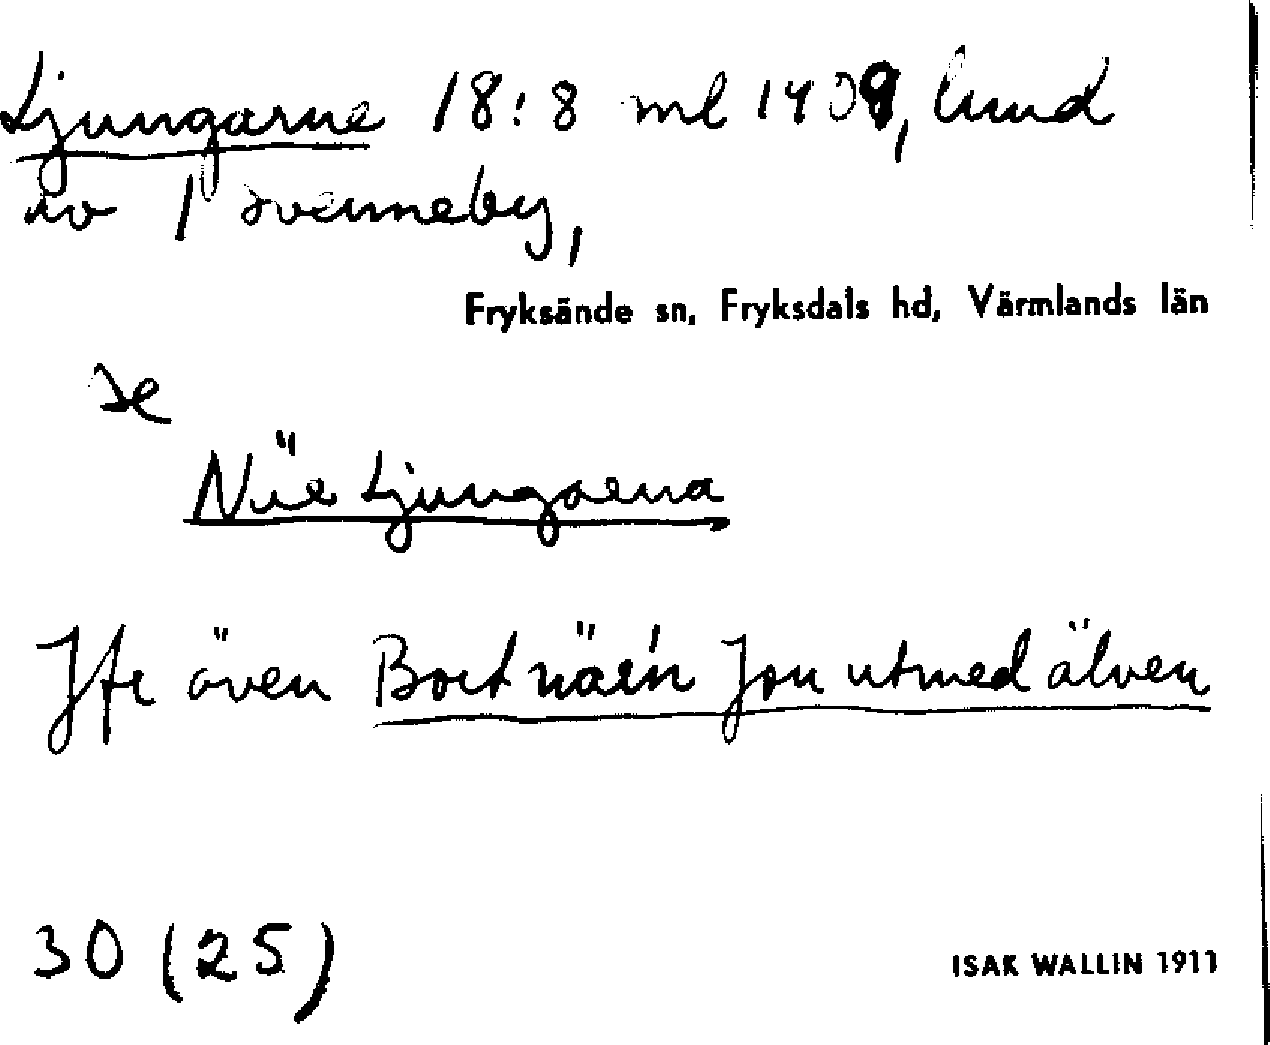 Ljungarne 18:8 ml 1409, lund
nv 1 Svenneby,
Fryksände sn, Fryksdals hd, Värmlands län
se
Nüe Ljungaena
Jfr även Bortnäe'n Jon utmed älven
30 (25)
ISAK WALLIN 1911